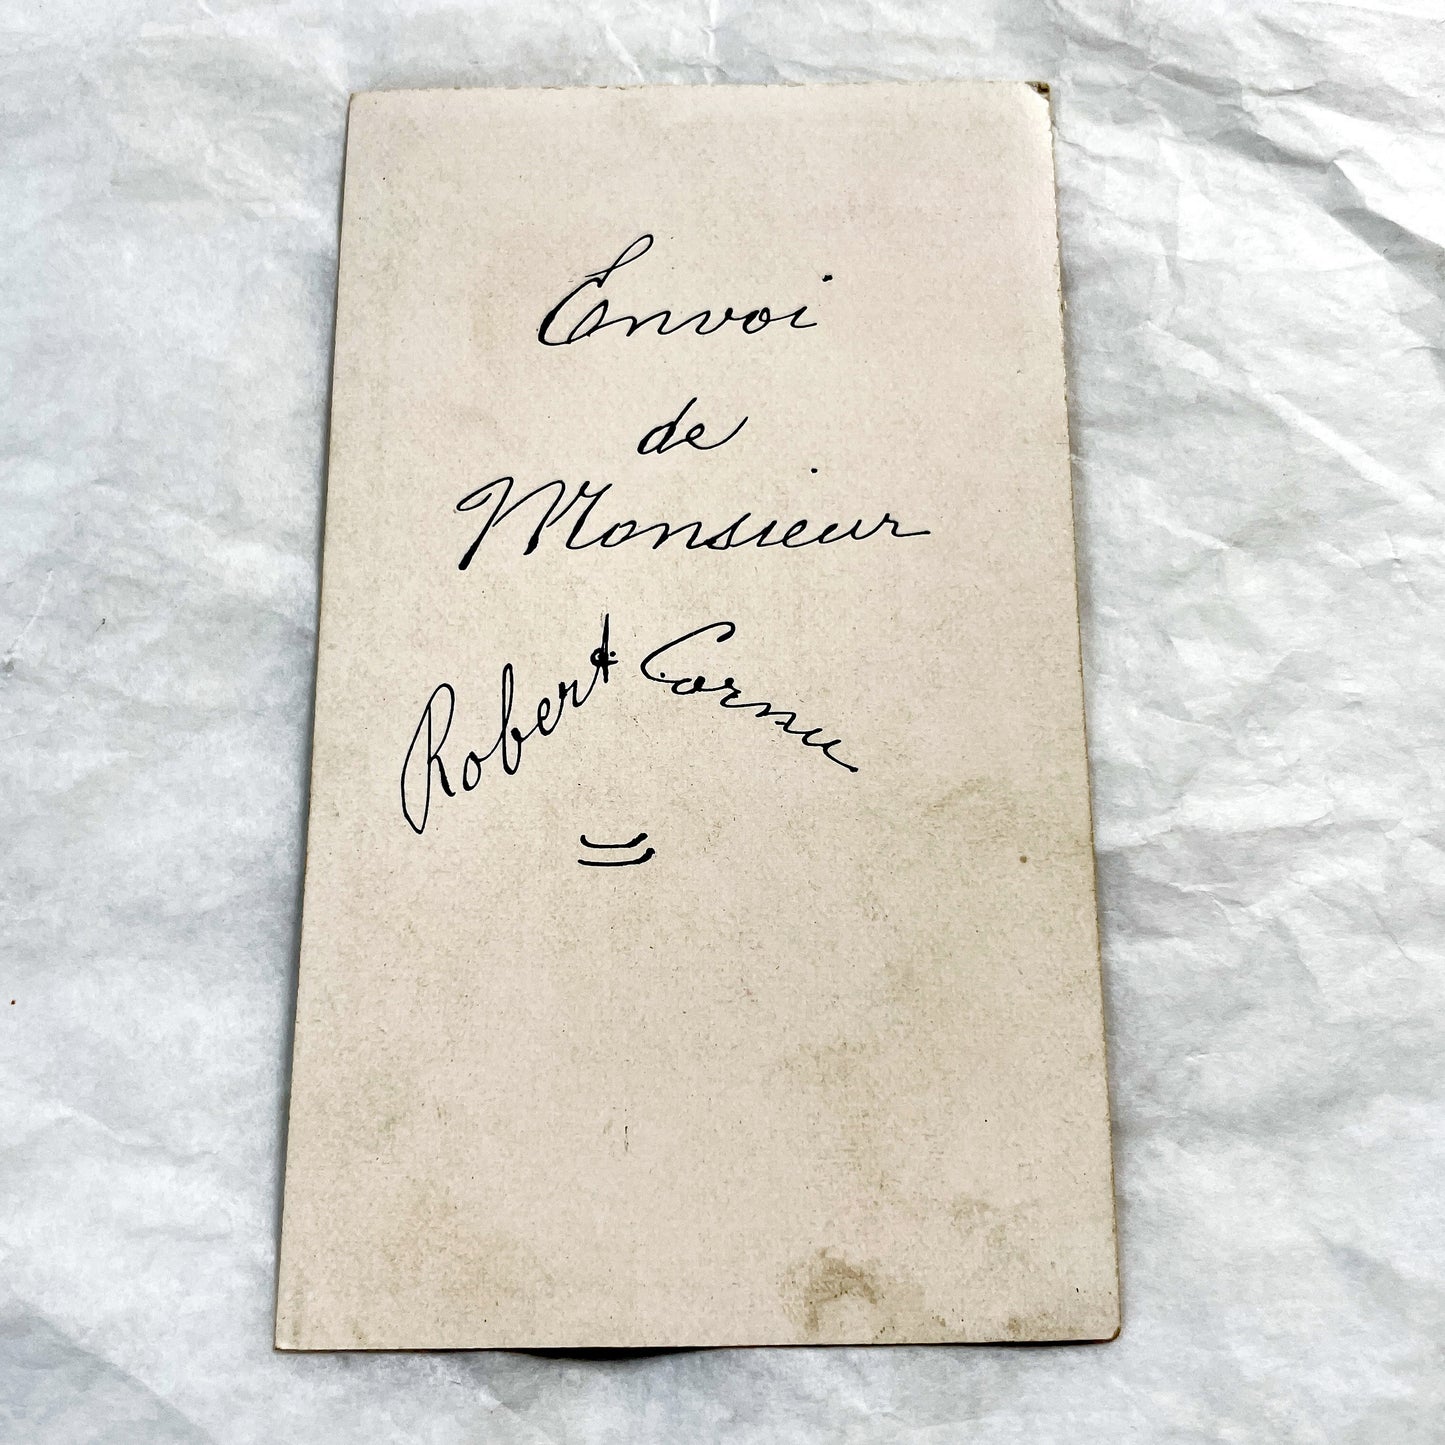 Envoi
de
Monsieur
Robert Cornu